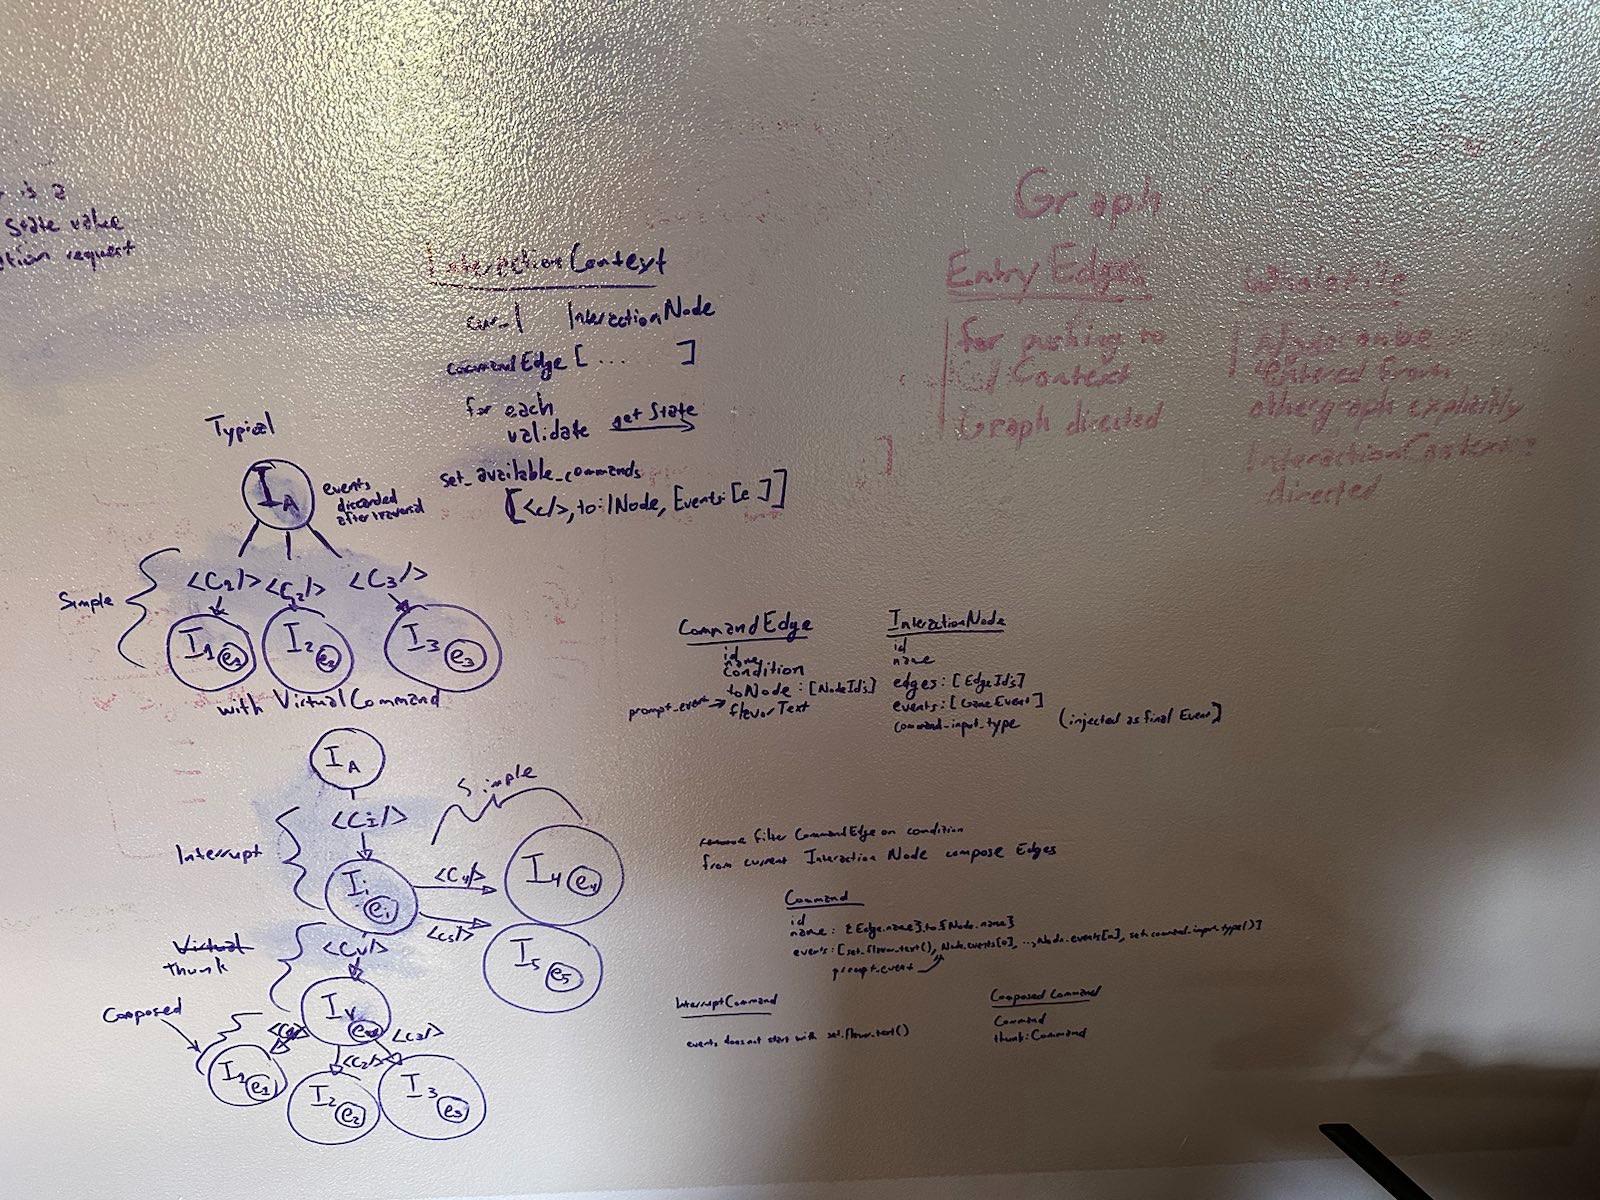 is a
State value
request
Interaction Context
InteractionNode
CommandEdge [ ... ]
for each
validate getState
set_available_commands
[<c/>, to: INode, Events: [e ]]
Graph
Entry Edges
for pushing to
Context
Graph directed
entered from
other graph explicitly
InteractionContext
directed
Typical
I A
events
discarded
after traversal
Simple
<C1/> <C2/> <C3/>
I1 e1 I2 e2 I3 e3
with VirtualCommand
I A
Simple
<Ci/>
Interrupt
Ii ei
<C4/>
I4 e4
<C5/>
I5 e5
Virtual
thunk
<Cv/>
Composed
Iv
<C2/> <C3/>
I1 e1 I2 e2 I3 e3
CommandEdge
id
name
condition
toNode : [NodeIds]
prompt_event
flavorText
InteractionNode
id
name
edges : [EdgeIds]
events : [GameEvent]
command_input_type (injected as final Event)
remove filter CommandEdge on condition
from current Interaction Node compose Edges
Command
id
name : {Edge.name} to {Node.name}
events : [set_flavor_text(), Node.events[0], ..., Node.events[n], set_command_input_type()]
prompt_event
InterruptCommand
events does not start with set_flavor_text()
Composed Command
Command
thunk: Command